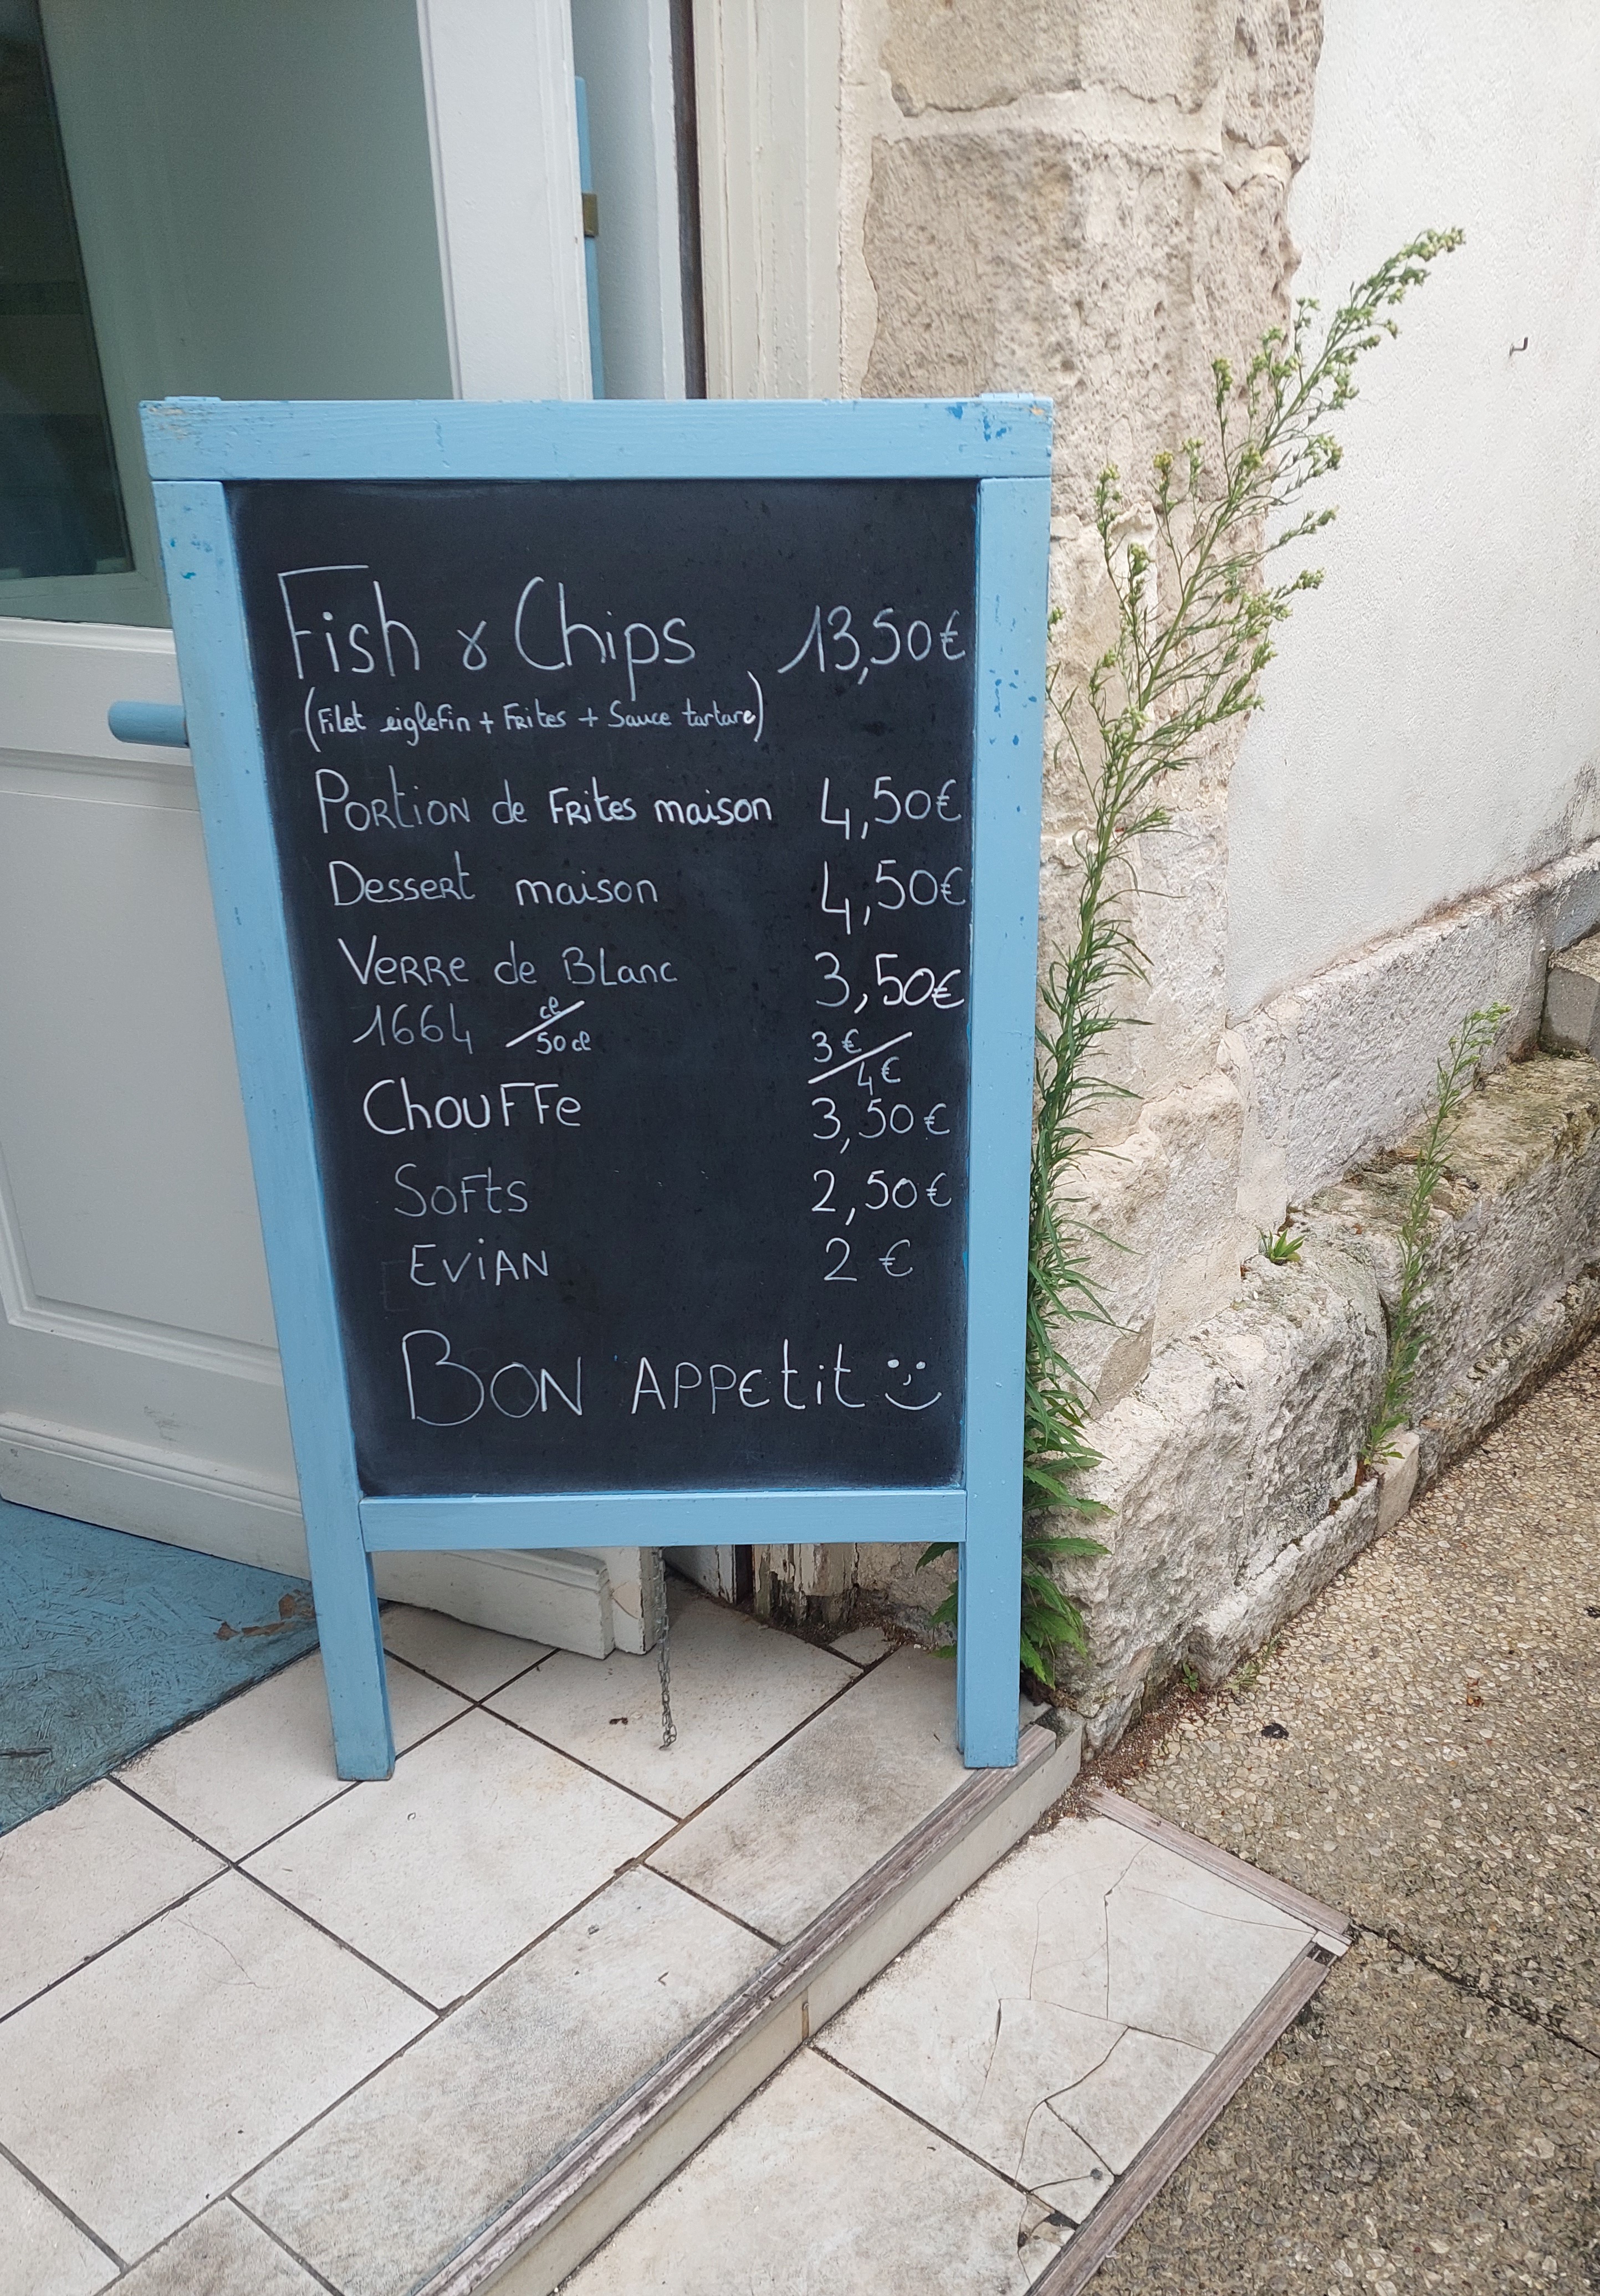 Fish & Chips 13,50€
(Filet eiglefin + Frites + Sauce tartare)
Portion de Frites maison 4,50€
Dessert maison 4,50€
Verre de Blanc 3,50€
1664 cl/50cl 3€/4€
Chouffe 3,50€
Softs 2,50€
Evian 2 €
Bon Appetit